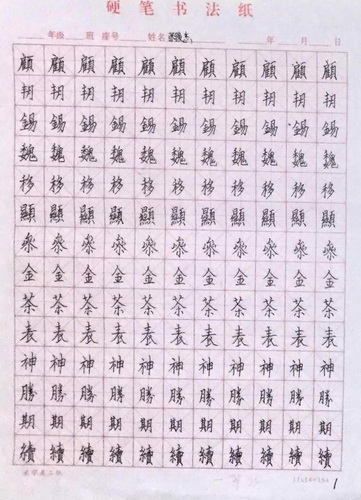 硬笔书法纸
年级 班 座号 姓名 年 月 日
顧 顧 顧 顧 顧 顧 顧 顧 顧 顧
錫 錫 錫 錫 錫 錫 錫 錫 錫 錫
魏 魏 魏 魏 魏 魏 魏 魏 魏 魏
移 移 移 移 移 移 移 移 移 移
顯 顯 顯 顯 顯 顯 顯 顯 顯 顯
金 金 金 金 金 金 金 金 金 金
茶 茶 茶 茶 茶 茶 茶 茶 茶 茶
表 表 表 表 表 表 表 表 表 表
神 神 神 神 神 神 神 神 神 神
勝 勝 勝 勝 勝 勝 勝 勝 勝 勝
期 期 期 期 期 期 期 期 期 期
續 續 續 續 續 續 續 續 續 續
1